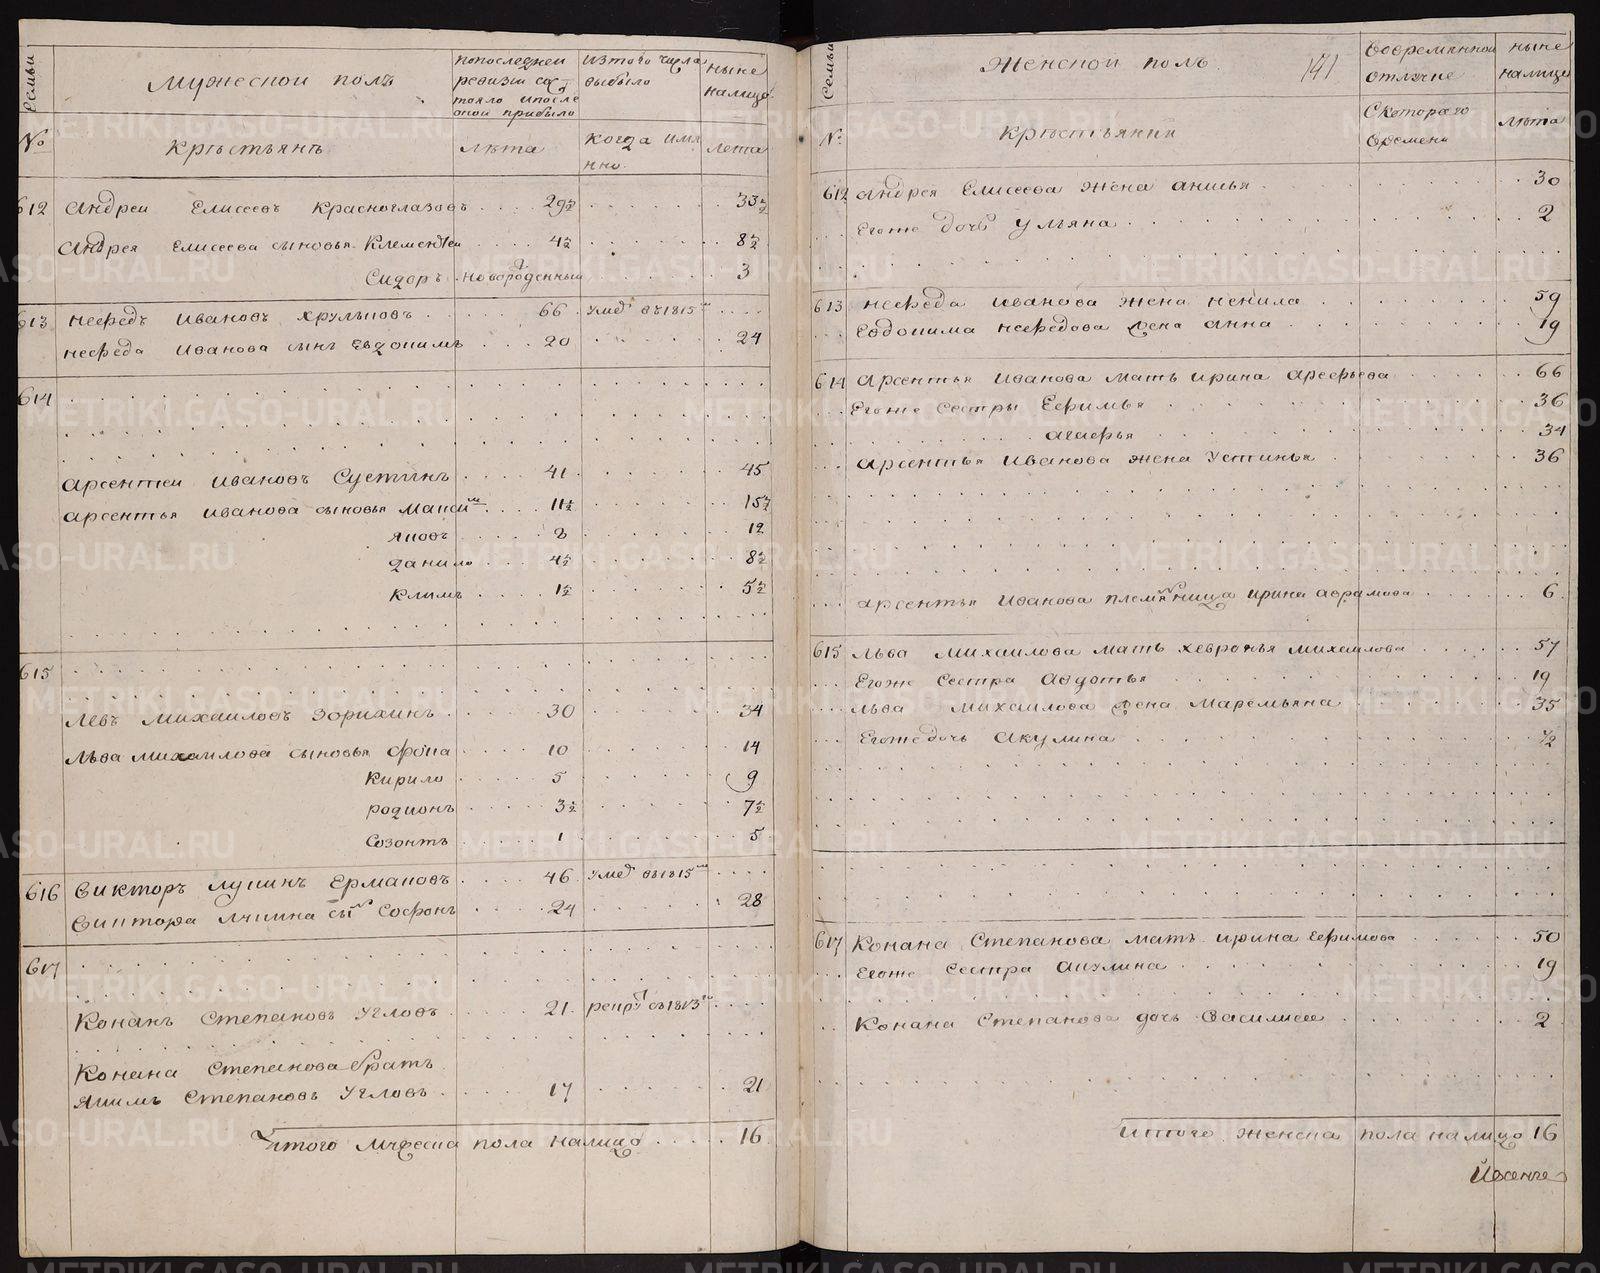 Семьи
Мужескои полъ
попоследнеи
ревизіи сос
тояло ипосле
онои прибыло
Изтого числа
выбыло
ныне
налицо
№
Кръстьянъ
лѣта
когда имя
нно
лета
612 Андреи Елисеевъ Красноглазовъ 29½ 33½
Андрея Елисеева сыновья Клементеи 4½ 8½
Сидоръ новорожденныи 3
613 Несредъ Ивановъ Хрульковъ 66 умер въ1815м
Несреда Иванова сынъ Евдокимъ 20 24
614
Арсентеи Ивановъ Сустинъ 41 45
Арсентья Иванова сыновья Макси 11½ 15½
яковъ 8 12
данило 4½ 8½
климъ 1½ 5½
615
Левъ Михаиловъ Зорихинъ 30 34
Льва михаилова сыновья Фока 10 14
Кирило 5 9
родионъ 3½ 7½
Созонтъ 1 5
616 Викторъ лукинъ Ермаковъ 46 умер въ1815м
Виктора Лукина сы Софронъ 24 28
617
Кононъ Степановъ Угловъ 21 рекру съ1813
Конана Степанова братъ
якимъ Степановъ Угловъ 17 21
Итого мужеска пола налицо 16
Семьи
Женскои полъ
141
Вовременнои
отлучке
ныне
налице
№
кръстьянки
Скотораго
времени
лѣта
612 Андрея Елисеева жена анисья 30
Егоже дочь ульяна 2
613 несреда иванова жена ненила 59
Евдокима несредова жена анна 19
614 Арсентья Иванова мать ирина арсерьева 66
Егоже сестры Еефимья 36
агафья 34
Арсентья Иванова жена устинья 36
арсентья Иванова племянница ирина аврамова 6
615 Льва михаилова мать хевронья михаилова 57
Егоже сестра авдотья 19
льва михаилова жена маремьяна 35
Егоже дочь Акулина ½
617 Конана Степанова мать ирина Еефимова 50
Егоже Сестра Акулина 19
Конана Степанова дочь Василиса 2
Итого женска пола налицо 16
METRIKI.GASO-URAL.RU